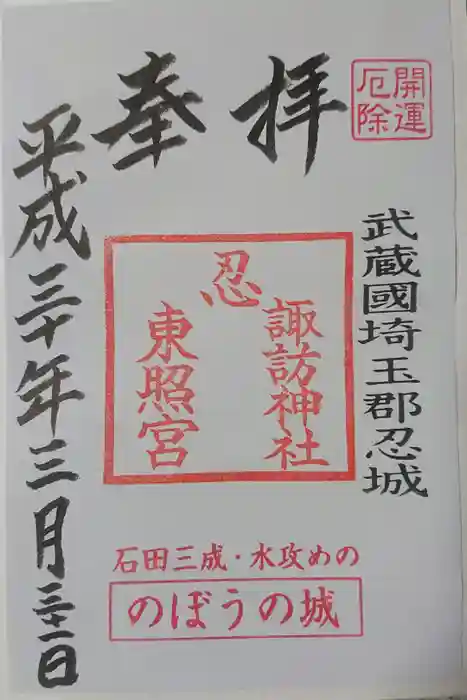 開運
厄除
奉拝
武蔵國埼玉郡忍城
忍
諏訪神社
東照宮
石田三成・水攻めの
のぼうの城
平成三十年三月三十一日